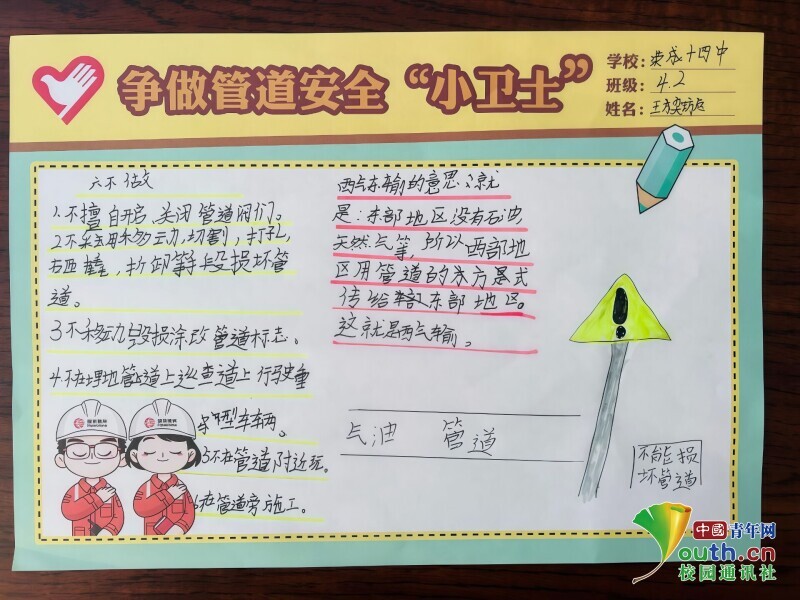 争做管道安全“小卫士”
学校：荣成十四中
班级：4.2
姓名：王
六不做
1.不擅自开启、关闭管道阀门。
2不采用移动,切割,打孔,
砸撞,拆卸等手段损坏管
道。
3不移动毁损涂改管道标志。
4不在埋地管道上巡查道上行驶重
型车辆。
5不在管道附近玩。
6在管道旁施工。
西气东输的意思:就
是:东部地区没有石油,
天然气等,所以西部地
区用管道的方是式
传给东部地区。
这就是西气输。
气油 管道
不能损
坏管道
中國青年网
Youth.cn
校园通讯社